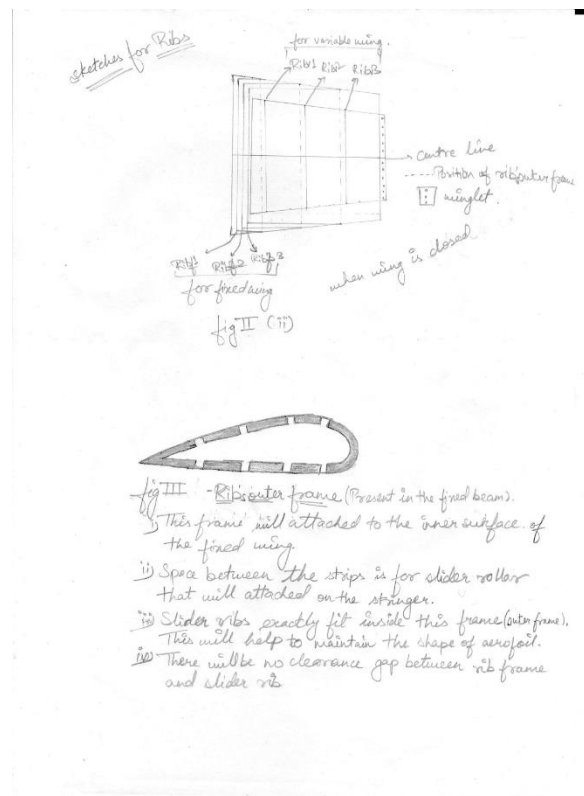 sketches for Ribs
for variable wing.
Rib1 Rib2 Rib3
centre line
---- Position of ribs outer frame
winglet.
Rib1 Rib2 Rib3
for fixed wing
when wing is closed
fig II (ii)
fig III - Ribs outer frame (Present in the fixed beam).
i) This frame will attached to the inner surface of
the fixed wing.
ii) Space between the strips is for slider rollar
that will attached on the stringer.
iii) Slider ribs exactly fit inside this frame (outer frame).
This will help to maintain the shape of aerofoil.
iv) There will be no clearance gap between rib frame
and slider rib